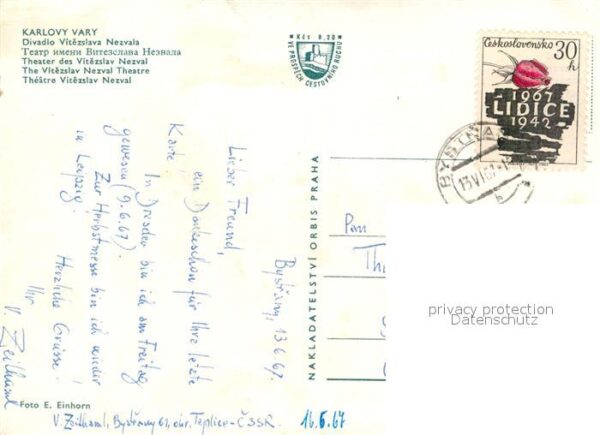 KARLOVY VARY
Divadlo Vítězslava Nezvala
Театр имени Витезслава Незвала
Theater des Vítězslav Nezval
The Vítězslav Nezval Theatre
Théâtre Vítězslav Nezval
Kčs 0,20
VE PROSPĚCH CESTOVNÍHO RUCHU
Československo 30 h
1967
LIDICE
1942
13.VI.67
Bystřany, 13.6.67.
Lieber Freund,
ein Dankeschön für Ihre letzte
Karte!
In Dresden bin ich am Freitag
gewesen (9.6.67).
Zur Herbstmesse bin ich wieder
in Leipzig.
Herzliche Grüsse!
Ihr
V. Zeithaml
NAKLADATELSTVÍ ORBIS PRAHA
Pan
Th
privacy protection
Datenschutz
Foto E. Einhorn
V. Zeithaml, Bystřany 61, okr. Teplice-ČSSR.
16.6.67